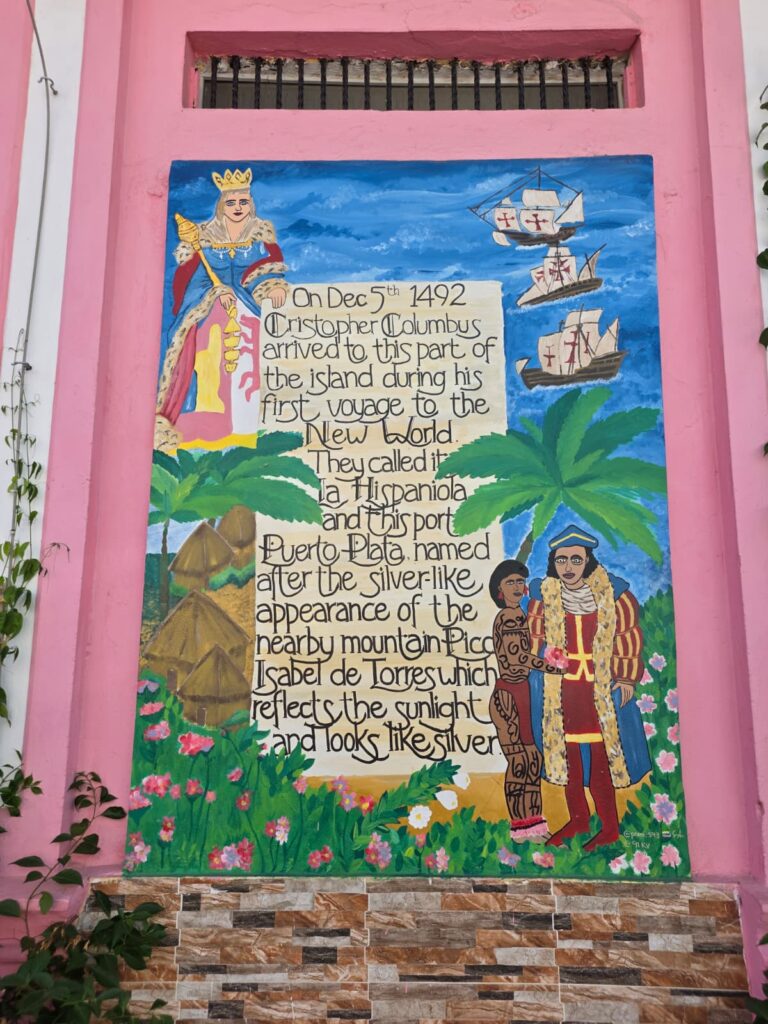 On Dec 5th 1492
Cristopher Columbus
arrived to this part of
the island during his
first voyage to the
New World.
They called it
la Hispaniola
and this port
Puerto-Plata, named
after the silver-like
appearance of the
nearby mountain-Pico
Isabel de Torres which
reflects the sunlight
and looks like silver.